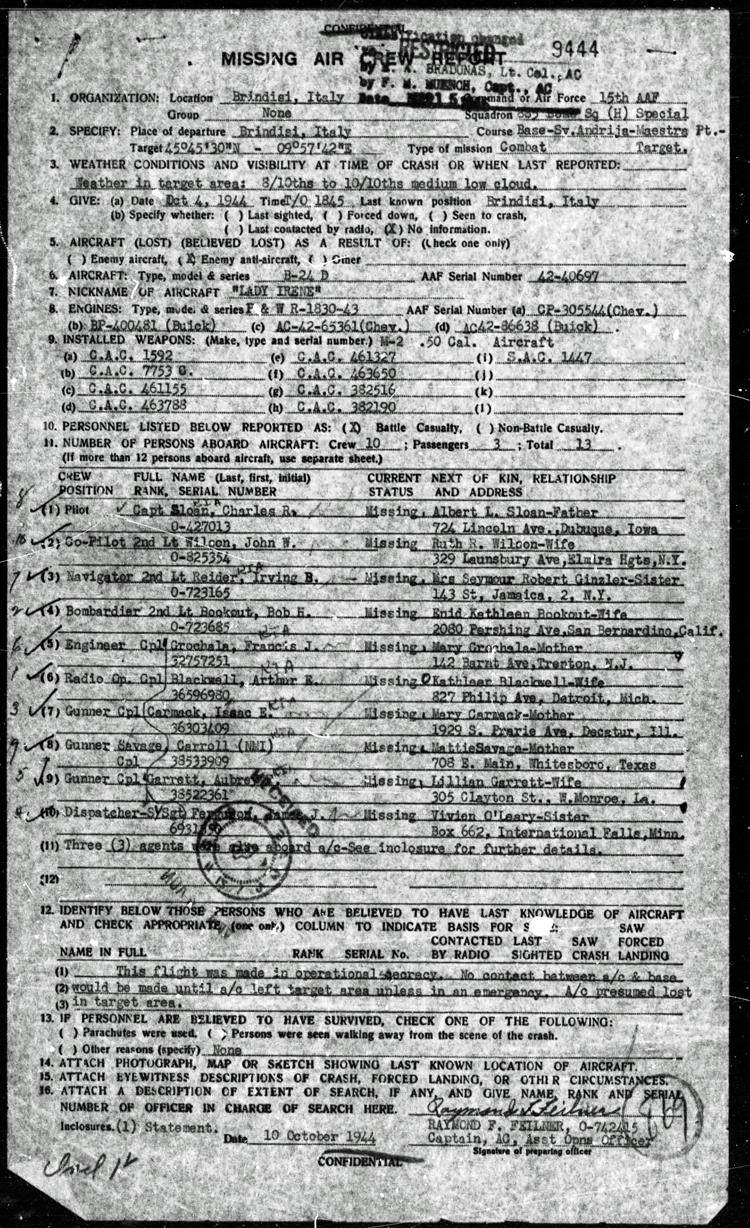 CONFIDENTIAL
Classification changed
RESTRICTED
9444
MISSING AIR CREW REPORT
by E. A. BRADUNAS, Lt. Col., AC
by F. M. MUENCH, Capt., AC
Date
1. ORGANIZATION: Location Brindisi, Italy Command or Air Force 15th AAF
Group None Squadron 885 Bomb Sq (H) Special
2. SPECIFY: Place of departure Brindisi, Italy Course Base-Sv.Andrija-Maestra Pt.-
Target 45°45'30"N - 09°57'42"E Type of mission Combat Target.
3. WEATHER CONDITIONS AND VISIBILITY AT TIME OF CRASH OR WHEN LAST REPORTED:
Weather in target area: 8/10ths to 10/10ths medium low cloud.
4. GIVE: (a) Date Oct 4, 1944 Time T/O 1845 Last known position Brindisi, Italy
(b) Specify whether: ( ) Last sighted, ( ) Forced down, ( ) Seen to crash,
( ) Last contacted by radio, (X) No information.
5. AIRCRAFT (LOST) (BELIEVED LOST) AS A RESULT OF: (Check one only)
( ) Enemy aircraft, (X) Enemy anti-aircraft, ( ) Other
6. AIRCRAFT: Type, model & series B-24 D AAF Serial Number 42-40697
7. NICKNAME OF AIRCRAFT "LADY IRENE"
8. ENGINES: Type, model & series P & W R-1830-43 AAF Serial Number (a) CP-305544(Chev.)
(b) BP-400481 (Buick) (c) AC-42-65361(Chev.) (d) AC42-86638 (Buick) .
9. INSTALLED WEAPONS: (Make, type and serial number.) M-2 .50 Cal. Aircraft
(a) C.A.C. 1592 (e) C.A.C. 461327 (i) S.A.C. 1447
(b) C.A.C. 7753 G. (f) C.A.C. 463650 (j)
(c) C.A.C. 461155 (g) C.A.C. 382516 (k)
(d) C.A.C. 463788 (h) C.A.C. 382190 (l)
10. PERSONNEL LISTED BELOW REPORTED AS: (X) Battle Casualty, ( ) Non-Battle Casualty.
11. NUMBER OF PERSONS ABOARD AIRCRAFT: Crew 10 ; Passengers 3 ; Total 13 .
(If more than 12 persons aboard aircraft, use separate sheet.)
CREW FULL NAME (Last, first, initial) CURRENT NEXT OF KIN, RELATIONSHIP
POSITION RANK, SERIAL NUMBER STATUS AND ADDRESS
(1) Pilot Capt Sloan, Charles R. Missing Albert L. Sloan-Father
O-427013 724 Lincoln Ave., Dubuque, Iowa
(2) Co-Pilot 2nd Lt Wilcon, John W. Missing Ruth R. Wilcon-Wife
O-825354 329 Launsbury Ave, Elmira Hgts, N.Y.
(3) Navigator 2nd Lt Reider, Irving B. Missing, Mrs Seymour Robert Ginzler-Sister
O-723165 143 St, Jamaica, 2, N.Y.
(4) Bombardier 2nd Lt Bookout, Bob H. Missing Enid Kathleen Bookout-Wife
O-723685 2080 Pershing Ave, San Bernardino, Calif.
(5) Engineer Cpl Grochala, Francis J. Missing, Mary Grochala-Mother
32757251 142 Barnt Ave, Trenton, N.J.
(6) Radio Op. Cpl Blackwell, Arthur E. Missing Kathleen Blackwell-Wife
36596980 827 Philip Ave, Detroit, Mich.
(7) Gunner Cpl Carmack, Isaac E. Missing, Mary Carmack-Mother
36303409 1929 S. Prarie Ave, Decatur, Ill.
(8) Gunner Savage, Carroll (NMI) Missing, MattieSavage-Mother
Cpl 38533909 708 E. Main, Whitesboro, Texas
(9) Gunner Cpl Garrett, Aubrey Missing, Lillian Garrett-Wife
38522361 305 Clayton St., W.Monroe, La.
(10) Dispatcher-S/Sgt Ferguson, James J. Missing Vivien O'Leary-Sister
Box 662, International Falls, Minn.
(11) Three (3) agents were also aboard a/c-See inclosure for further details.
RECEIVED
(12)
12. IDENTIFY BELOW THOSE PERSONS WHO ARE BELIEVED TO HAVE LAST KNOWLEDGE OF AIRCRAFT
AND CHECK APPROPRIATE (one only) COLUMN TO INDICATE BASIS FOR SAW
CONTACTED LAST SAW FORCED
NAME IN FULL RANK SERIAL No. BY RADIO SIGHTED CRASH LANDING
(1) This flight was made in operational secrecy. No contact between a/c & base
(2) would be made until a/c left target area unless in an emergency. A/c presumed lost
(3) in target area.
13. IF PERSONNEL ARE BELIEVED TO HAVE SURVIVED, CHECK ONE OF THE FOLLOWING:
( ) Parachutes were used, ( ) Persons were seen walking away from the scene of the crash.
( ) Other reasons (specify) None
14. ATTACH PHOTOGRAPH, MAP OR SKETCH SHOWING LAST KNOWN LOCATION OF AIRCRAFT.
15. ATTACH EYEWITNESS DESCRIPTIONS OF CRASH, FORCED LANDING, OR OTHER CIRCUMSTANCES.
16. ATTACH A DESCRIPTION OF EXTENT OF SEARCH, IF ANY, AND GIVE NAME, RANK AND SERIAL
NUMBER OF OFFICER IN CHARGE OF SEARCH HERE. Raymond F. Feilner
Inclosures. (1) Statement. RAYMOND F. FEILNER, O-742415
Date 10 October 1944 Captain, AC, Asst Opns Officer
Signature of preparing officer
CONFIDENTIAL